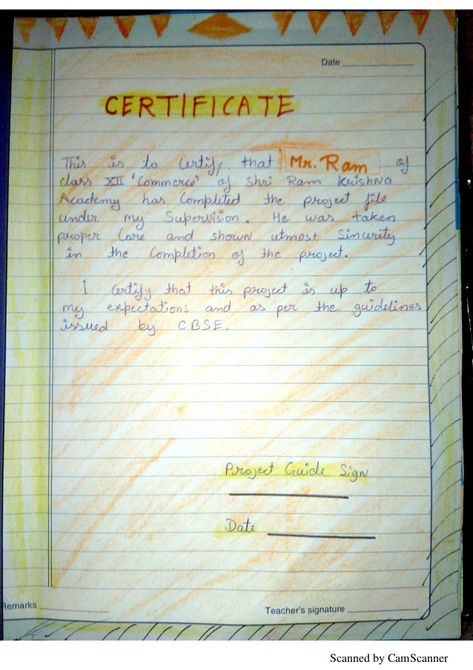 Date
CERTIFICATE
This is to Certify that Mr. Ram of
class XII 'Commerce' of Shri Ram Krishna
Academy has Completed the project file
under my Supervision. He was taken
proper Care and shown utmost Sincerity
in the Completion of the project.
I Certify that this project is up to
my expectations and as per the guidelines
issued by CBSE.
Project Guide Sign
Date
Remarks
Teacher's signature
Scanned by CamScanner